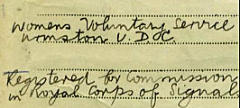 Womens Voluntary Service
Urmston U.D.C.
Registered for Commission
in Royal Corps of Signal